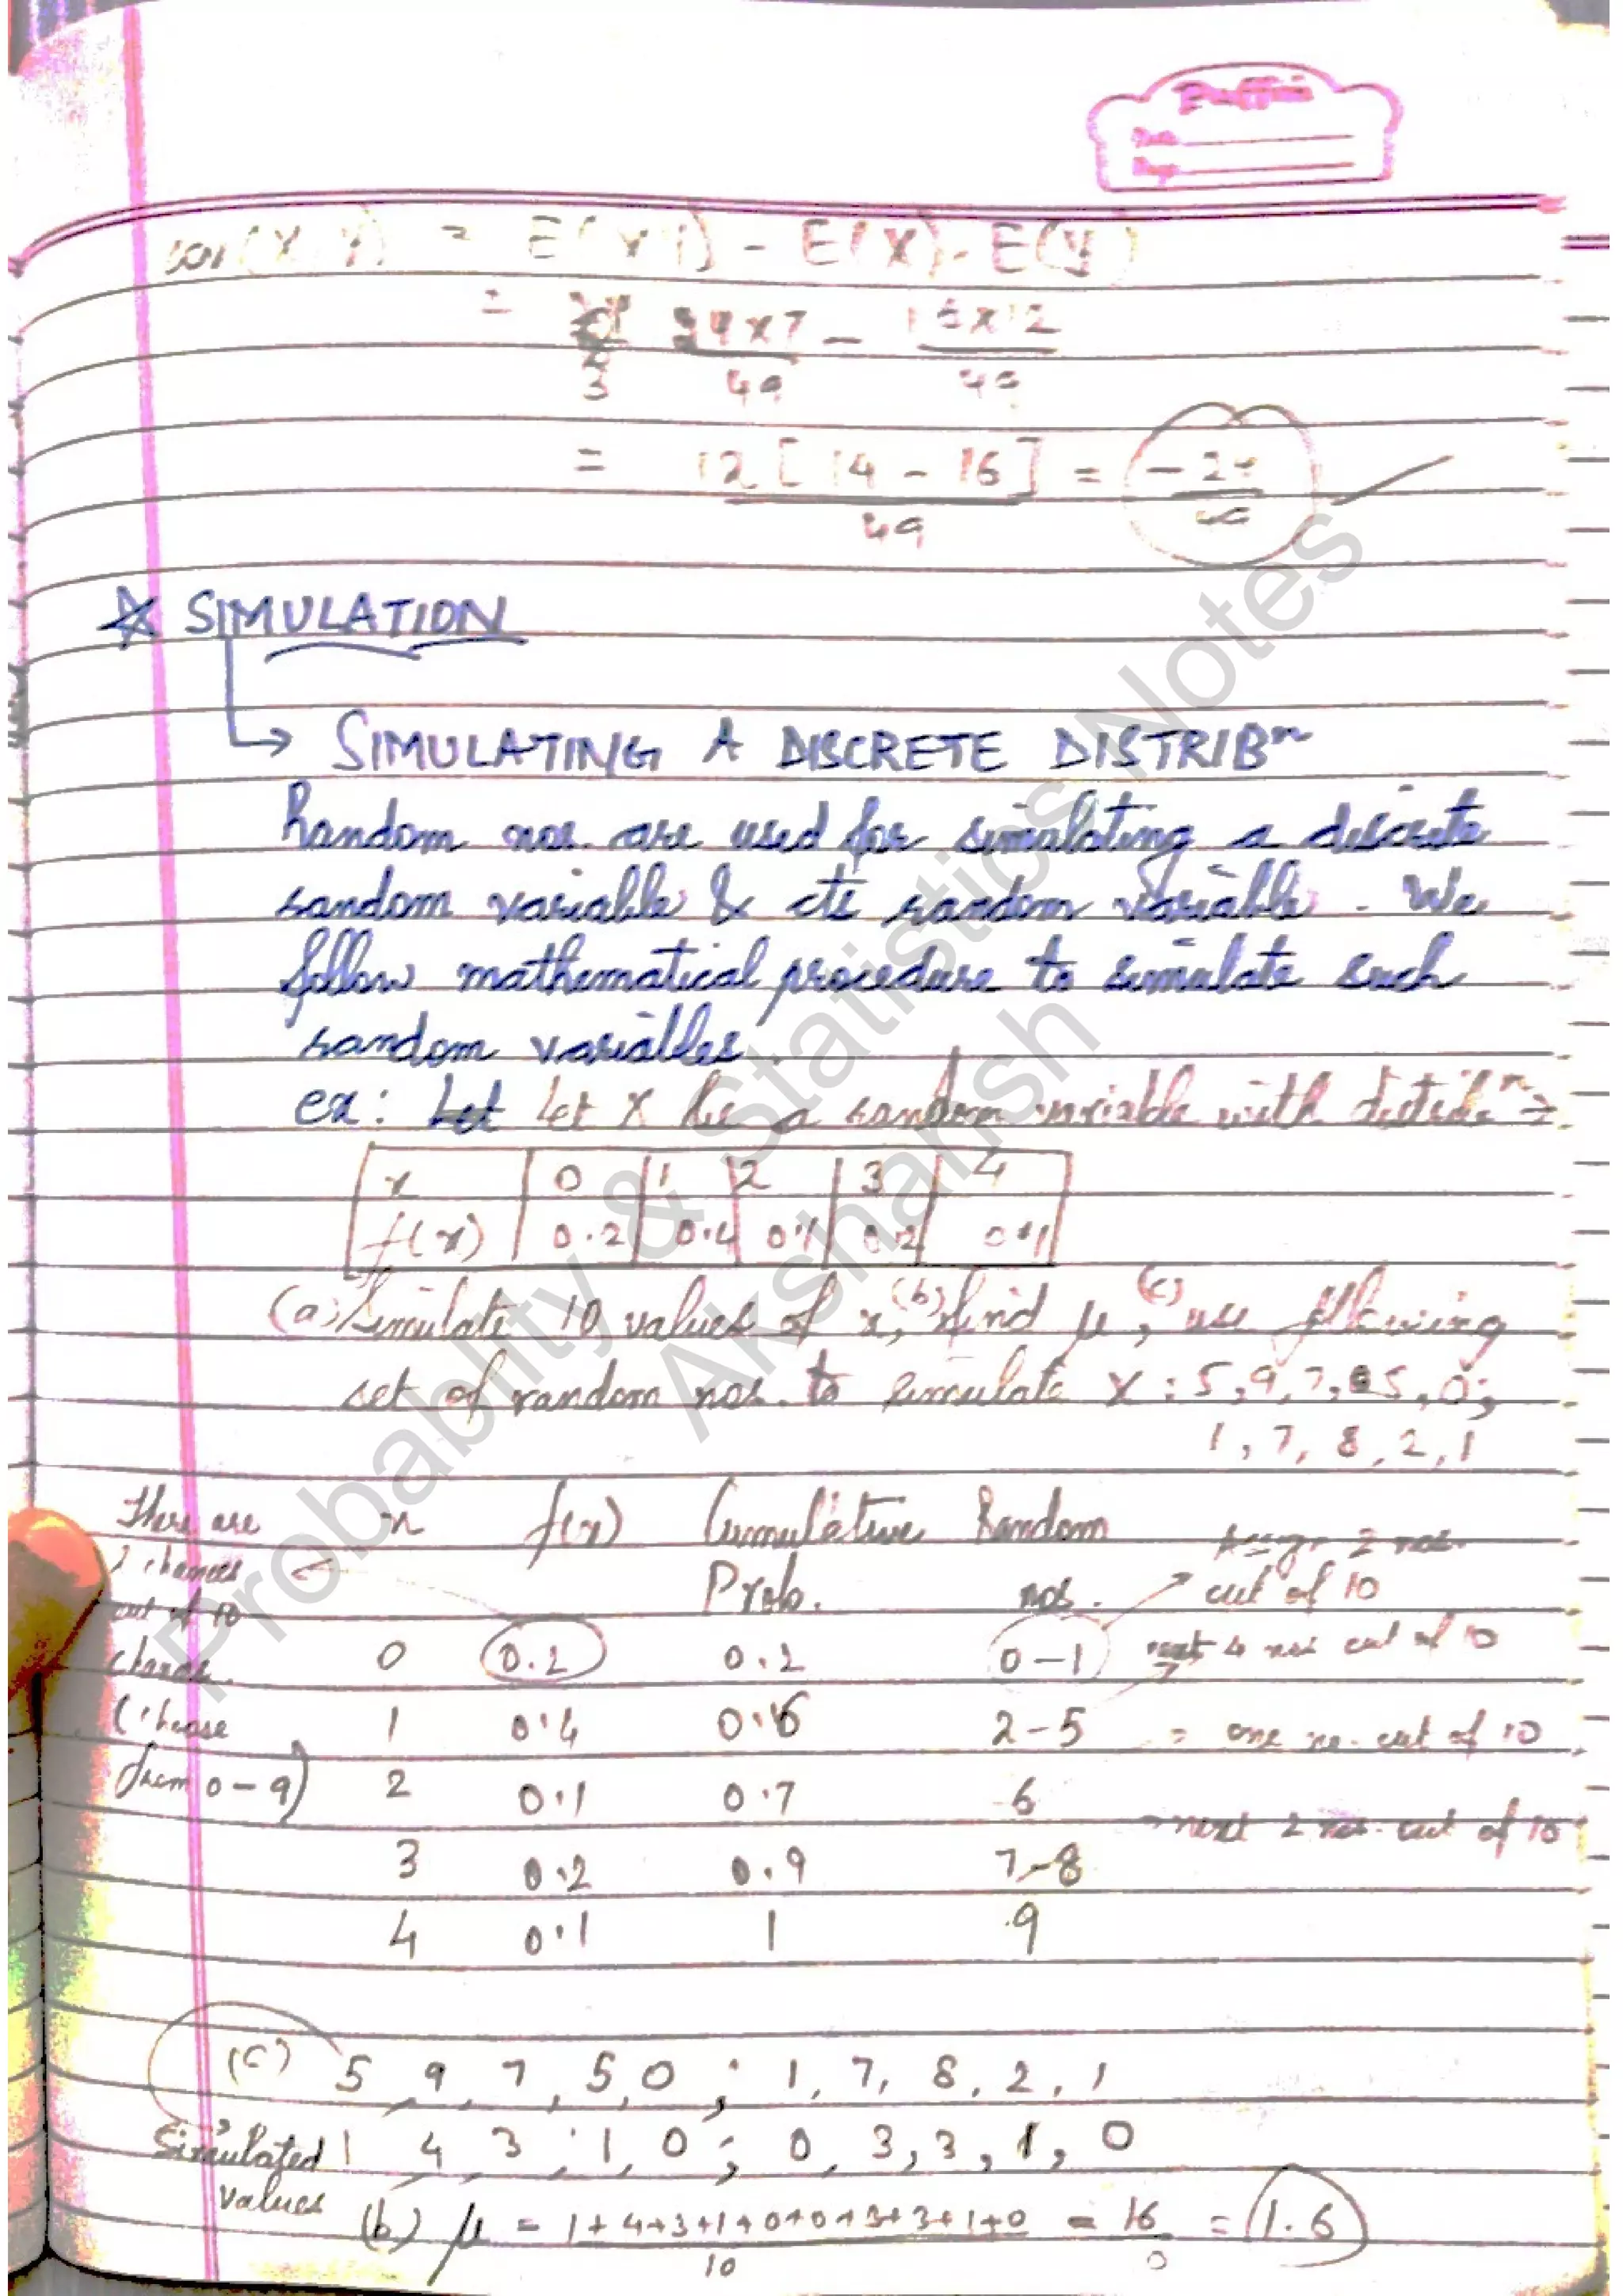 Puffin
cov(X,Y) = E(XY) - E(X). E(Y)
= 24x7 - 16x12
3 49 49
= 12[14 - 16] = -24
49 49
☆ SIMULATION
↳ SIMULATING A DISCRETE DISTRIBⁿ
Random nos. are used for simulating a discrete
random variable & cts random variable. We
follow mathematical procedure to simulate such
random variables.
ex: Let Let X be a random variable with distribⁿ →
x 0 1 2 3 4
f(x) 0.2 0.4 0.1 0.2 0.1
(a) Simulate 10 values of x, (b) find μ, (c) use following
set of random nos. to simulate X : 5, 9, 7, 5, 0;
1, 7, 8, 2, 1
There are x f(x) Cumulative Random Assign 2 nos.
2 chances Prob. nos. out of 10
out of 10
chance 0 0.2 0.2 0-1 next 4 nos out of 10
(Choose 1 0.4 0.6 2-5 = one no. out of 10
from 0-9) 2 0.1 0.7 6 → next 2 nos. out of 10
3 0.2 0.9 7-8
4 0.1 1 9
(c) 5, 9, 7, 5, 0 ; 1, 7, 8, 2, 1
Simulated 1 4, 3, 1, 0 ; 0, 3, 3, 1, 0
values (b) μ = 1+4+3+1+0+0+3+3+1+0 = 16 = 1.6
10 0
Probability & Statistics Notes
Akshansh